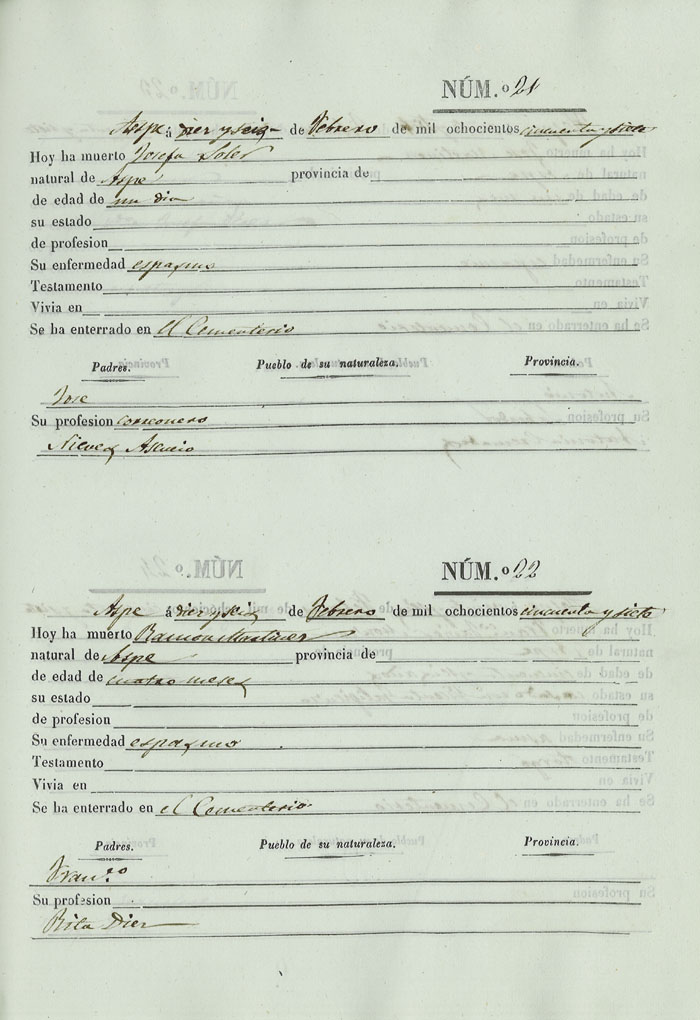 NÚM.º 21
Aspe á diez y seis de Febrero de mil ochocientos cincuenta y siete
Hoy ha muerto Josefa Soler
natural de Aspe provincia de
de edad de un dia
su estado
de profesion
Su enfermedad espasmo
Testamento
Vivia en
Se ha enterrado en el Cementerio
Padres. Pueblo de su naturaleza. Provincia.
Jose
Su profesion
Nieves Asencio
NÚM.º 22
Aspe á diez y seis de Febrero de mil ochocientos cincuenta y siete
Hoy ha muerto Ramon Martinez
natural de Aspe provincia de
de edad de cuatro meses
su estado
de profesion
Su enfermedad espasmo
Testamento
Vivia en
Se ha enterrado en el Cementerio
Padres. Pueblo de su naturaleza. Provincia.
Fran.co
Su profesion
Rita Diez